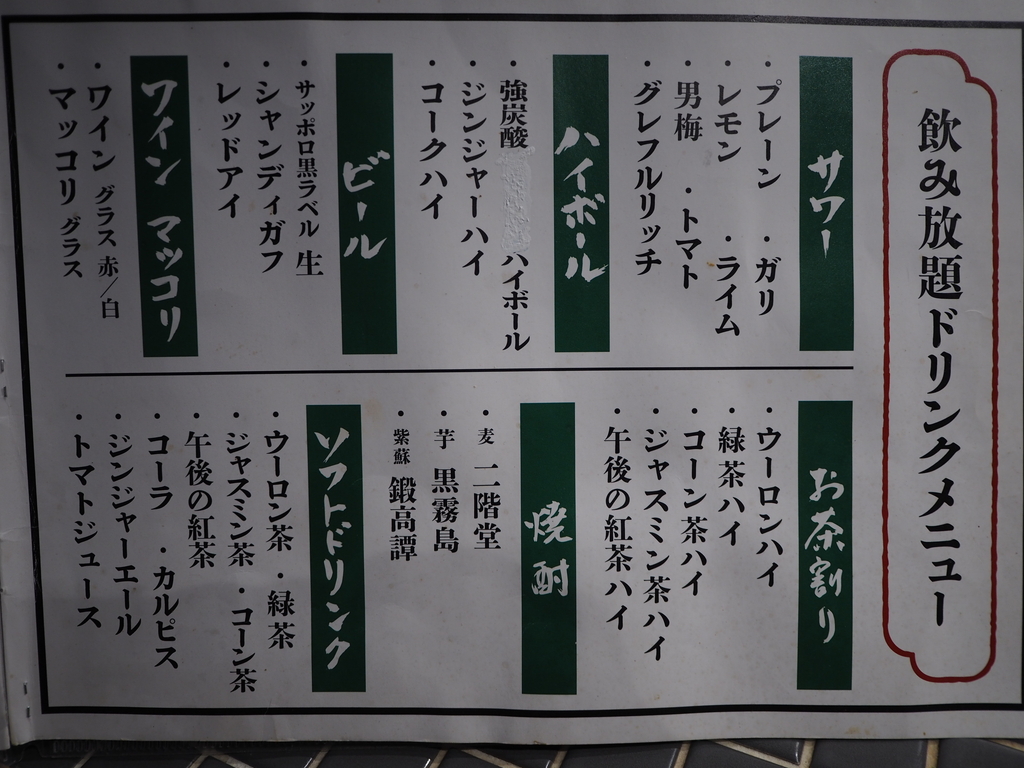 飲み放題ドリンクメニュー
サワー
・プレーン ・ガリ
・レモン ・ライム
・男梅 ・トマト
・グレフルリッチ
ハイボール
・強炭酸 ハイボール
・ジンジャーハイ
・コークハイ
ビール
・サッポロ黒ラベル 生
・シャンディガフ
・レッドアイ
ワイン マッコリ
・ワイン グラス 赤/白
・マッコリ グラス
お茶割り
・ウーロンハイ
・緑茶ハイ
・コーン茶ハイ
・ジャスミン茶ハイ
・午後の紅茶ハイ
焼酎
・麦 二階堂
・芋 黒霧島
・紫蘇 鍛高譚
ソフトドリンク
・ウーロン茶 ・緑茶
・ジャスミン茶 ・コーン茶
・午後の紅茶
・コーラ ・カルピス
・ジンジャーエール
・トマトジュース